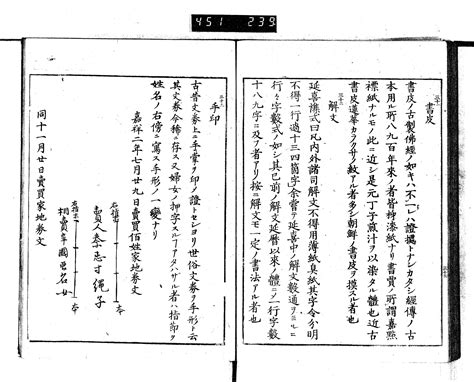 451 239
書皮
書皮ノ古製佛經ノ如キハ不レ可ニ證據トナシカタシ經傳ノ古
本用ル所八九百年來ノ者皆栁漆紙ナリ書賈ノ所謂嘉熙
標紙ナルモノ此ニ近シ是元丁子煎汁ヲ以染タル體也近古
書皮蓮華カラクサノ紋アル者多シ朝鮮ノ書皮ヲ摸スル者也
解文
延喜様式曰凡内外諸司解文不得用薄紙臭紙其字令分明
不得一行過十三四箇字余嘗テ延喜中ノ解文數通ヲミルニ
行々字數式ノ如シ其已前ノ解文延暦以來ノ體ミルニ一行字數
十八九字ニ及フ者アリ按ニ解文モ一定ノ書法アル者也
手印
古昔文券上ニ手掌ヲ印ノ證トセシヨリ世俗文券ヲ手形ト云
其文券今稀ニ存ス又婦女ノ押字スル丁アタハサル者ハ指印ヲ
姓名ノ右傍ニ寫ス手形ノ一變ナリ
嘉祥二年七月廿九日賣買佰姓家地券文
右指
賣人秦忌寸縄子
本
同十一月廿日賣買家地券文
右指
相賣 女
本